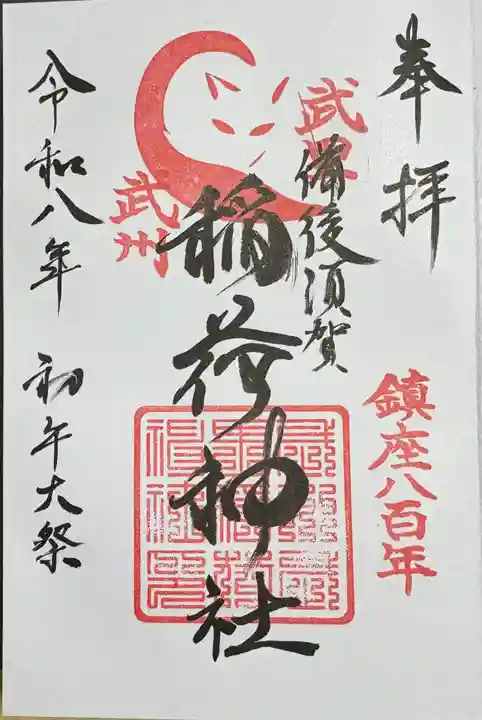 奉拝
鎮座八百年
武州
備後須賀
稲荷神社
武州
令和八年 初午大祭